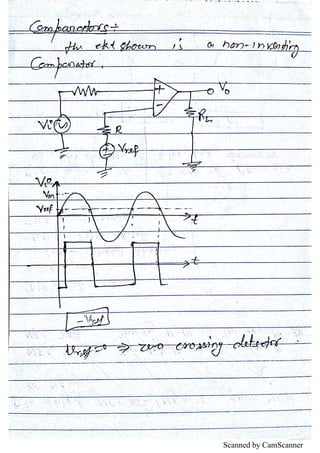 Comparators :-
the ckt shown is a non-inverting
Comparator.
+
-
Vo
RL
Vi
R
+
Vref
Vi
Vm
Vref
t
t
-Vref
Vref=0 ⇒ zero crossing detector.
Scanned by CamScanner